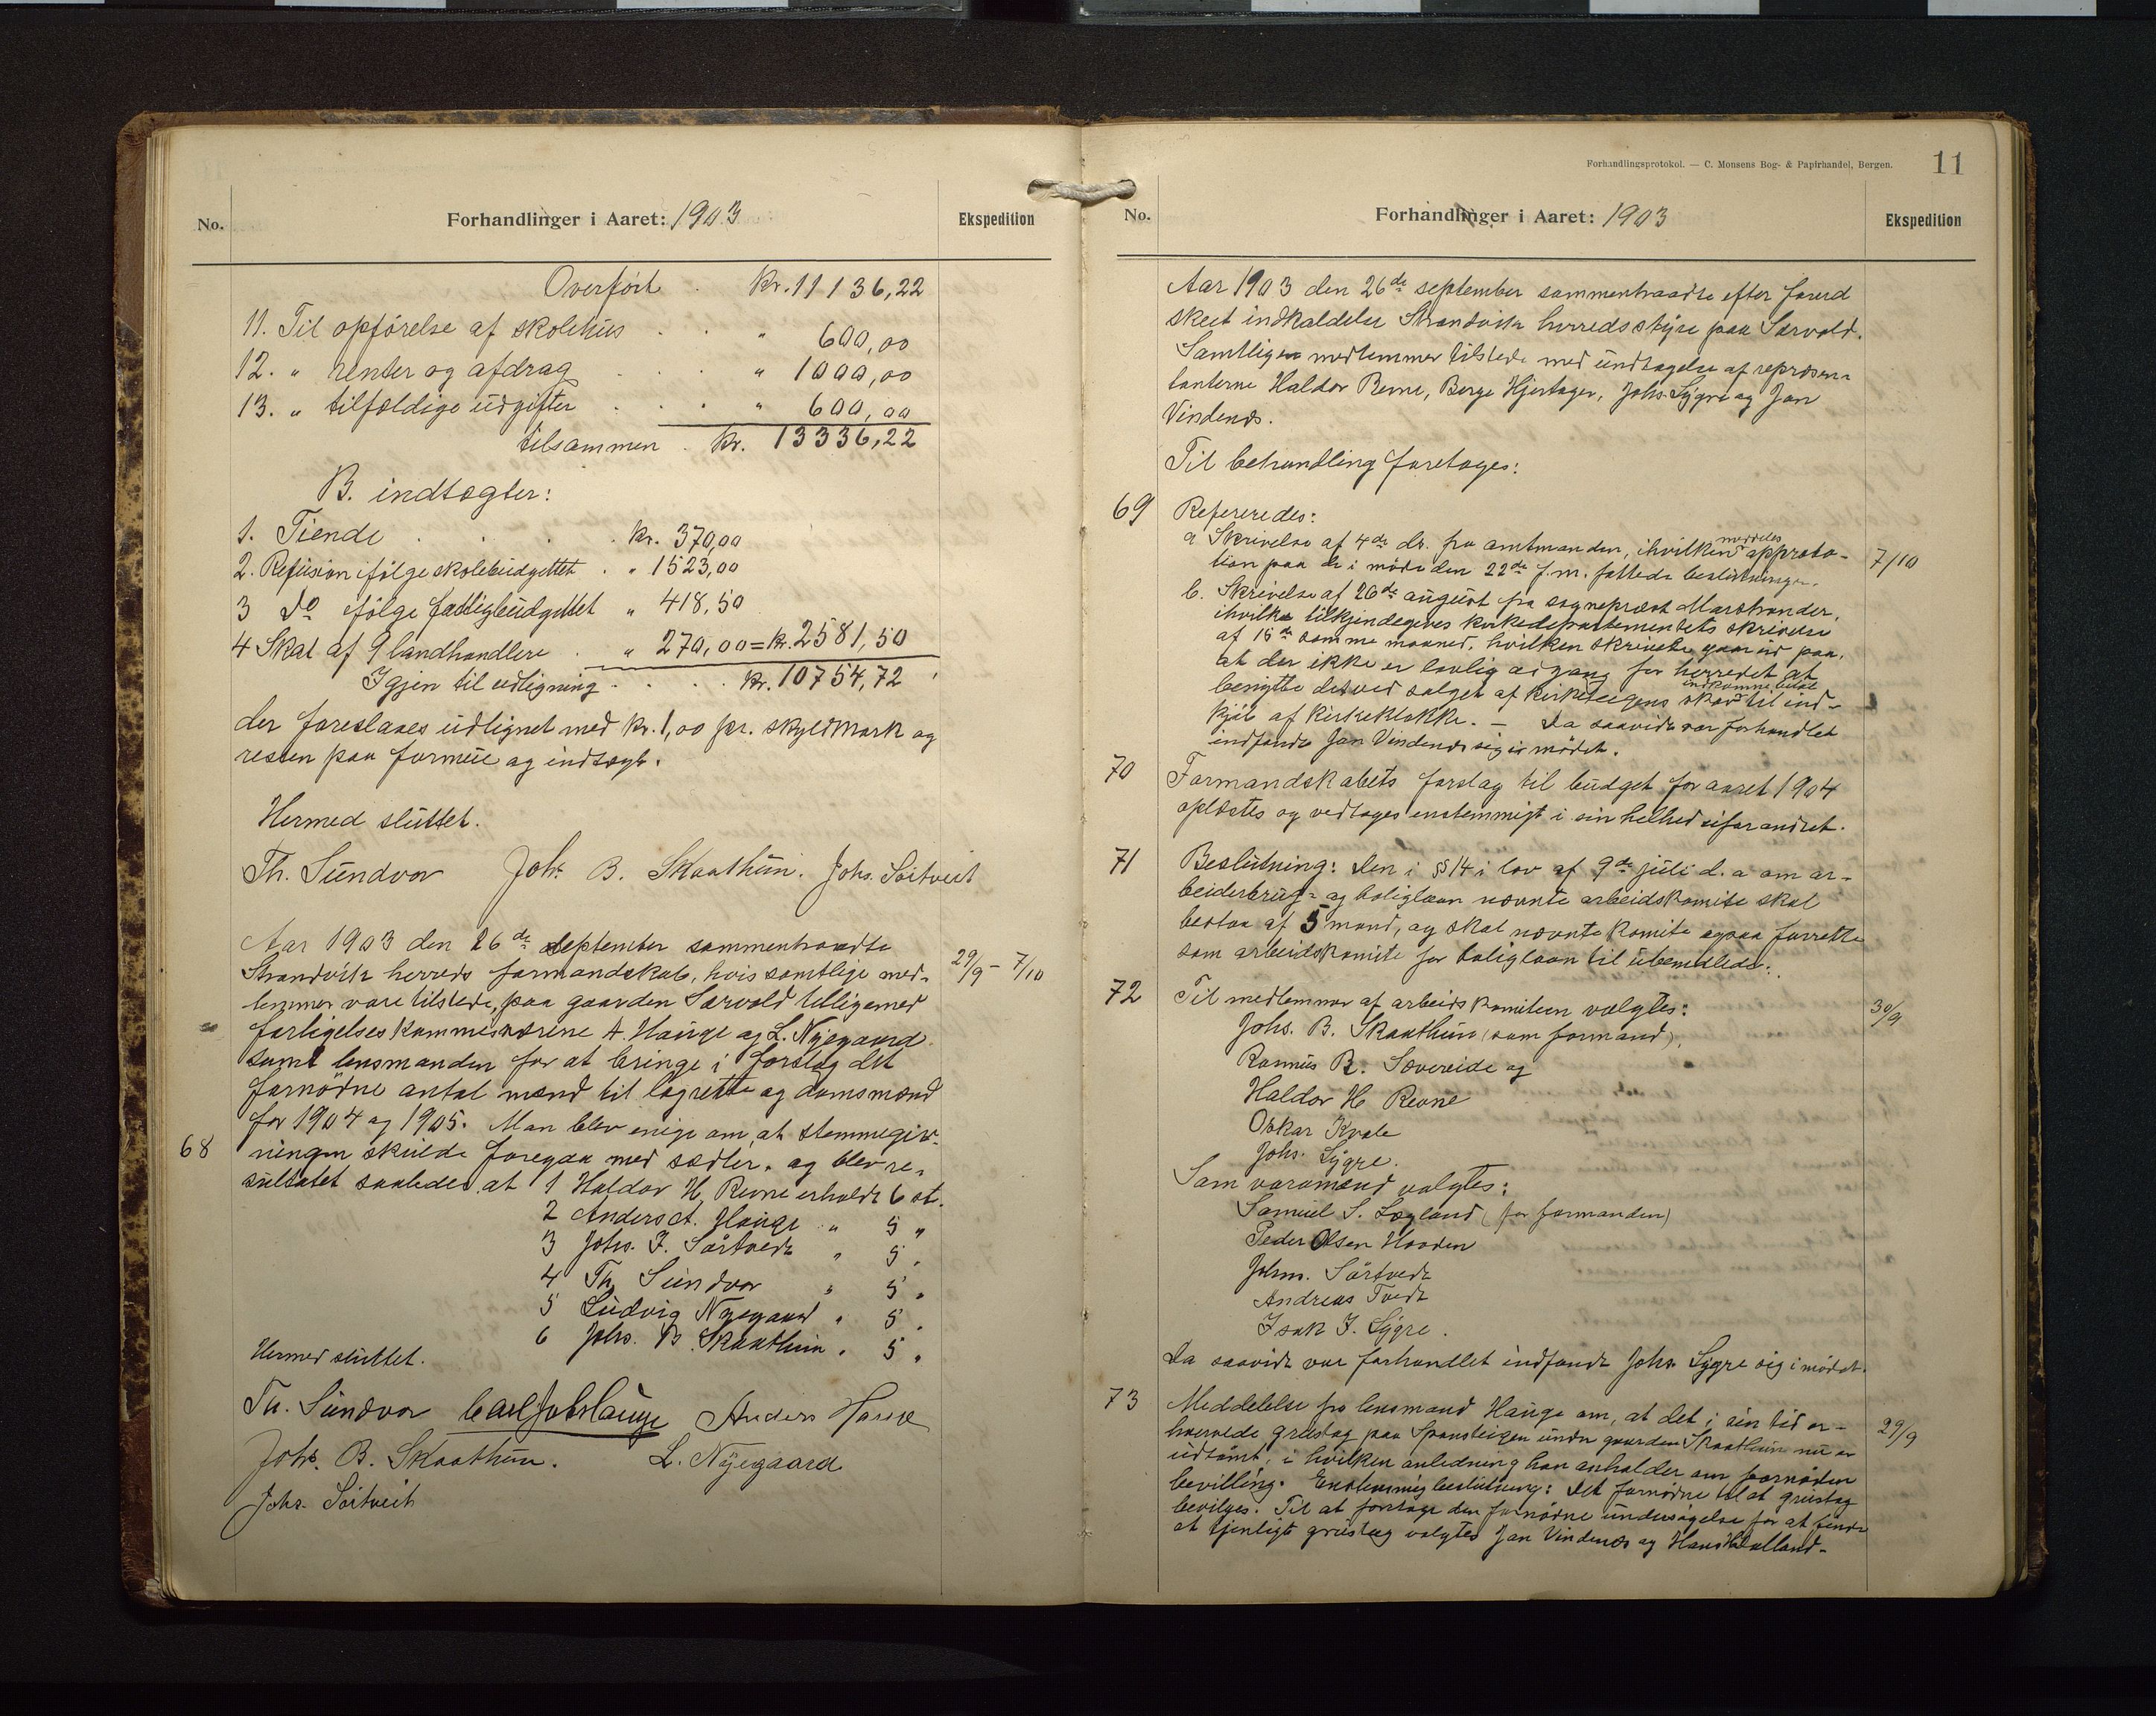 No.
Forhandlinger i Aaret: 1903
Ekspedition
Overført . kr. 11136,22
11. Til opførelse af skolehus . . " 600,00
12. " renter og afdrag . . . " 1000,00
13. " tilfældige udgifter . . . " 600,00
tilsammen . kr. 13336,22
B. indtægter:
1. Tiende . . . . kr. 370,00
2. Refusion ifølge skolebudgettet . " 1523,00
3 Do ifølge fattigbudgettet " 418,50
4 Skat af 9 landhandlere . " 270,00 = kr. 2581,50
Igjen til udligning . . . . kr. 10754,72
der foreslaaes udlignet med kr. 1,00 pr. skyldmark og
resten paa formue og indtægt.
Hermed sluttet.
Th. Sundvor Johs. B. Skaathun. Johs. Søitveit
Aar 1903 den 26de september sammentraadte
Strandvik herreds formandskab, hvis samtlige med-
lemmer vare tilstede, paa gaarden Særvold tilligemed
forligelseskommissærene A. Hauge og L. Nygaard
samt lensmanden for at bringe i forslag det
fornødne antal mænd til lagrette og domsmænd
for 1904 og 1905. Man blev enige om, at stemmegiv-
29/9 - 7/10
68
ningen skulde foregaa med sedler, og blev re-
sultatet saaledes at 1 Haldor H. Revne erholdt 6 st.
2 Anders A. Hauge " 5 "
3 Johs. J. Søitvedt " 5 "
4 Th. Sundvor " 5 "
5 Ludvig Nygaard " 5 "
6 Johs. B. Skaathun " 5 "
Hermed sluttet.
Th. Sundvor Carl Johs Hauge Anders Hauge
Johs. B. Skaathun. L. Nygaard
Johs. Søitveit
Forhandlingsprotokol. — C. Monsens Bog- & Papirhandel, Bergen.
11
No.
Forhandlinger i Aaret: 1903
Ekspedition
Aar 1903 den 26de september sammentraadte efter forud
skeet indkaldelse Strandvik herredsstyre paa Særvold.
Samtlige medlemmer tilstede med undtagelse af repræsen-
tanterne Haldor Revne, Berge Hjertager, Johs. Sygre og Jan
Vindenes.
Til behandling foretages:
69 Refereredes:
a Skrivelse af 4de ds. fra amtmanden, ihvilken meddeles approba-
tion paa de i møde den 22de f.m. fattede beslutninger.
7/10
b. Skrivelse af 26de august fra sogneprest Marstrander,
ihvilke tilkjendegives kirkedepartementets skrivelse
af 15de samme maaned, hvilken skrivelse gaar ud paa,
at der ikke er lovlig adgang for herredet at
benytte det ved salget af kirketeigens skov indkomne beløb til ind-
kjøb af kirkeklokke. — Da saavidt var forhandlet
indfandt Jan Vindenes sig i mødet.
70 Formandskabets forslag til budget for aaret 1904
oplæstes og vedtages enstemmigt i sin helhed uforandret.
71 Beslutning: Den i §14 i lov af 9de juli d. a om ar-
beiderbrug- og boliglaan nævnte arbeidskomite skal
bestaa af 5 mænd, og skal nævnte komite ogsaa forrette
som arbeidskomite for boliglaan til ubemidlede.
72 Til medlemmer af arbeidskomiteen valgtes:
30/9
Johs. B. Skaathun (som formand),
Rasmus B. Sævereide og
Haldor H Revne
Oskar Kvale
Johs. Sygre.
Som varamænd valgtes:
Samuel S. Løgland (for formanden)
Peder Olsen Haaden
Johan. Søitvedt
Andreas Tvedt
Isak J. Sygre.
Da saavidt var forhandlet indfandt Johs. Sygre sig i mødet.
73 Meddelelse fra lensmand Hauge om, at det i sin tid er-
hvervede grustag paa Spansteigen under gaarden Skaathun nu er
29/9
udtømt, i hvilken anledning han anholder om fornøden
bevilling. Enstemmig beslutning: Det fornødne til at grustag
bevilges. Til at foretage den fornødne undersøgelse for at finde
et tjenligt grustag valgtes Jan Vindenes og Hans